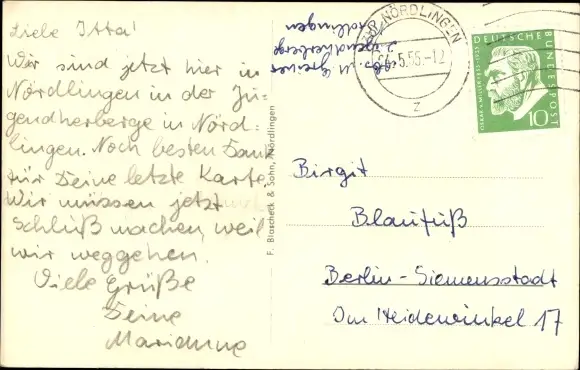 Liebe Itta!
Wir sind jetzt hier in
Nördlingen in der Ju-
gendherberge in Nörd-
lingen. Noch besten Dank
für Deine letzte Karte.
Wir müssen jetzt
Schluß machen, weil
wir weggehen.
Viele Grüße
Deine
Marianne
Jugendherberge
Nördlingen
F. Blascheck & Sohn, Nördlingen
NÖRDLINGEN
5.55.-12
z
DEUTSCHE
BUNDESPOST
10
Birgit
Blaufuß
Berlin-Siemensstadt
Im Heidewinkel 17